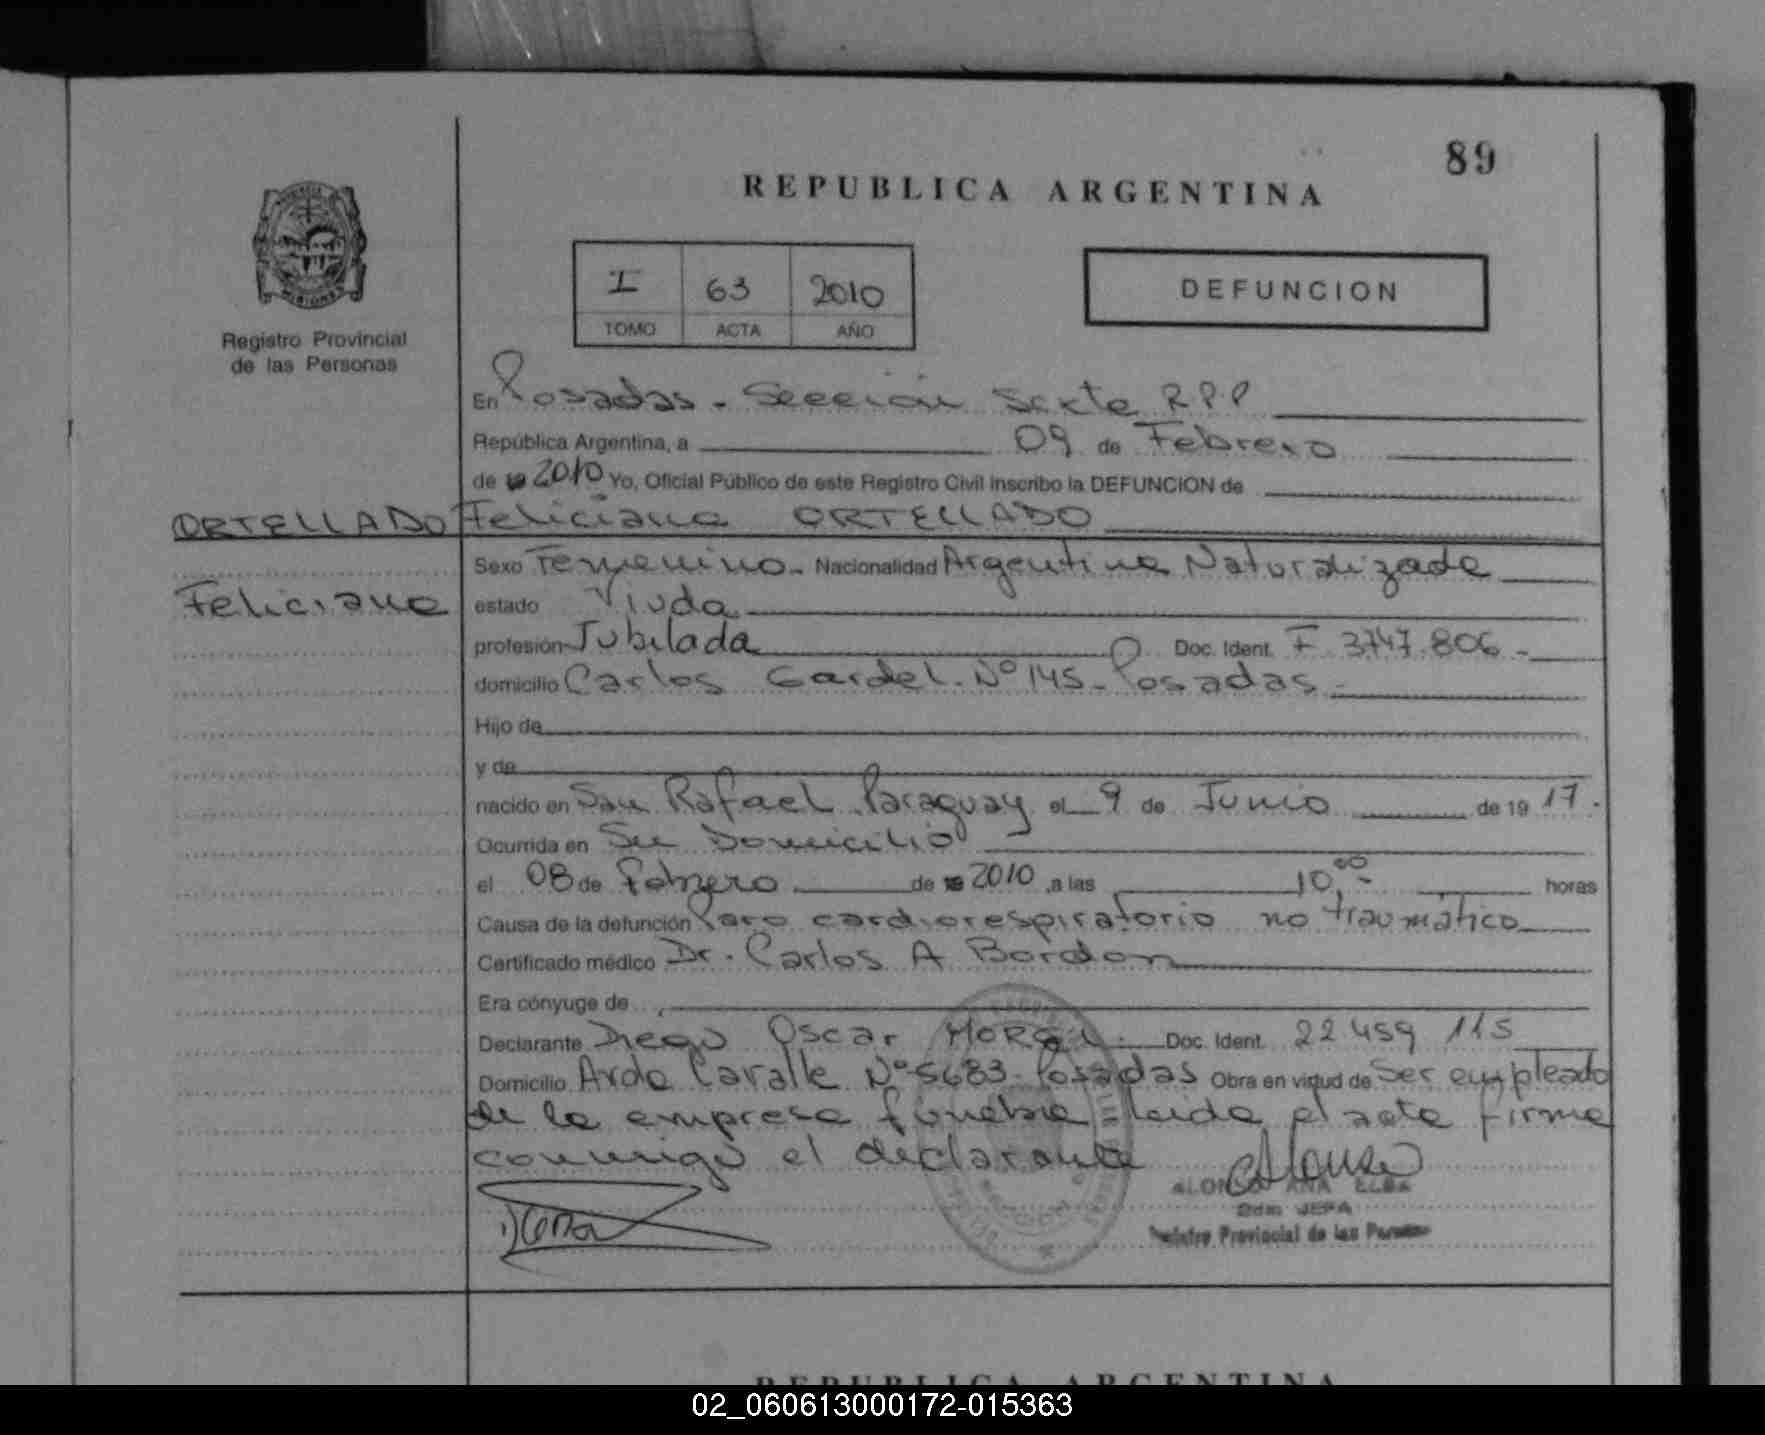 89
REPUBLICA ARGENTINA
I 63 2010
TOMO ACTA AÑO
DEFUNCION
Registro Provincial
de las Personas
En Posadas - Sección Sexta R.P.P
República Argentina, a 09 de Febrero
de 2010 Yo, Oficial Público de este Registro Civil inscribo la DEFUNCION de
ORTELLADO Feliciana ORTELLADO
Sexo Femenino. Nacionalidad Argentina Naturalizada
Feliciana estado Viuda
profesión Jubilada Doc. Ident. F 3747.806 -
domicilio Carlos Gardel. Nº 145 - Posadas -
Hijo de
y de
nacido en San Rafael Paraguay el 9 de Junio de 19 17.
Ocurrida en Su Domicilio
el 08 de febrero de 2010, a las 10,00 - horas
Causa de la defunción Paro cardiorespiratorio no traumático
Certificado médico Dr. Carlos A Bordon
Era cónyuge de
Declarante Diego Oscar Doc. Ident. 22 459 115
Domicilio Avda Nº 5683 - Posadas Obra en virtud de Ser empleado
de la empresa funebre leida el acta firma
conmigo el declarante
ALONSO ANA ELBA
JEFA
Registro Provincial de las Personas
REPUBLICA ARGENTINA
02_060613000172-015363